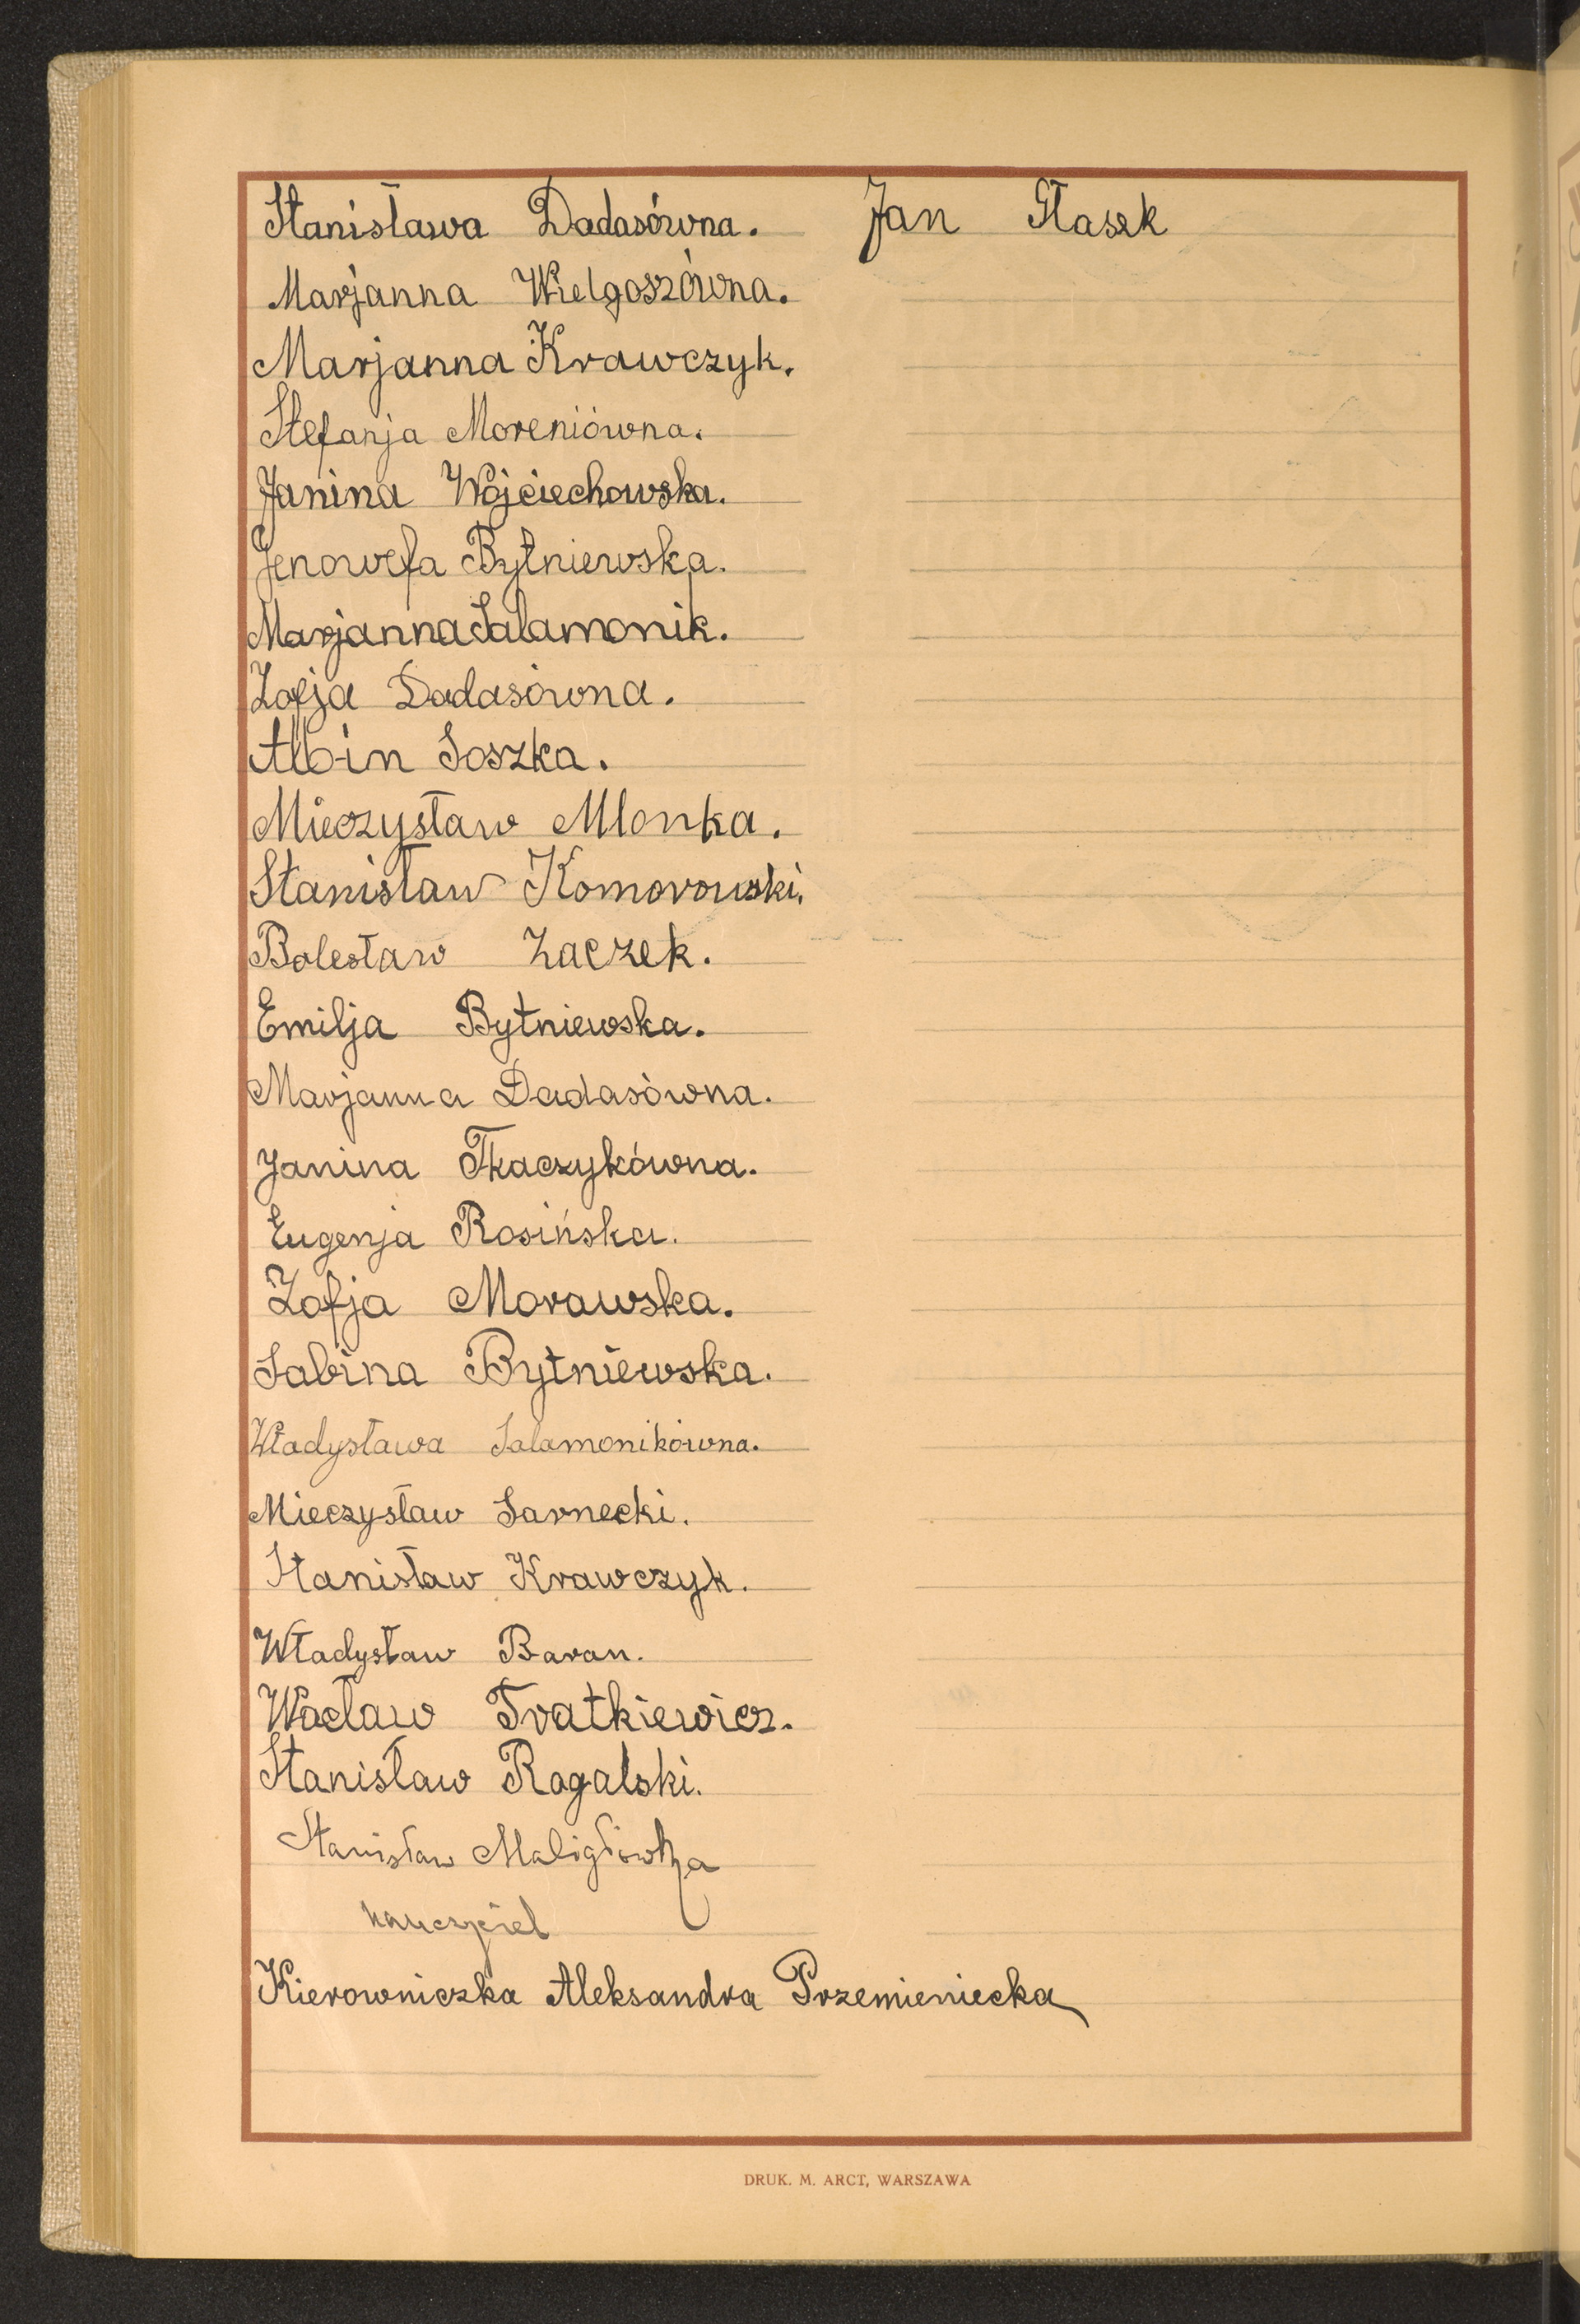 Stanisława Dadasówna.
Jan Ptasek
Marjanna Wielgoszówna.
Marjanna Krawczyk.
Stefanja Moreniówna.
Janina Wojciechowska.
Jenowefa Bytniewska.
Marjanna Salamonik.
Zofja Dadasówna.
Albin Soszka.
Mieczysław Mlonka.
Stanisław Komorowski.
Bolesław Zaczek.
Emilja Bytniewska.
Marjanna Dadasówna.
Janina Tkaczykówna.
Eugenja Rosińska.
Zofja Morawska.
Sabina Bytniewska.
Władysława Salamonikówna.
Mieczysław Sarnecki.
Stanisław Krawczyk.
Władysław Baran.
Wacław Tratkiewicz.
Stanisław Rogalski.
Stanisław Maligłówka
nauczyciel
Kierowniczka Aleksandra Przemieniecka
DRUK. M. ARCT, WARSZAWA